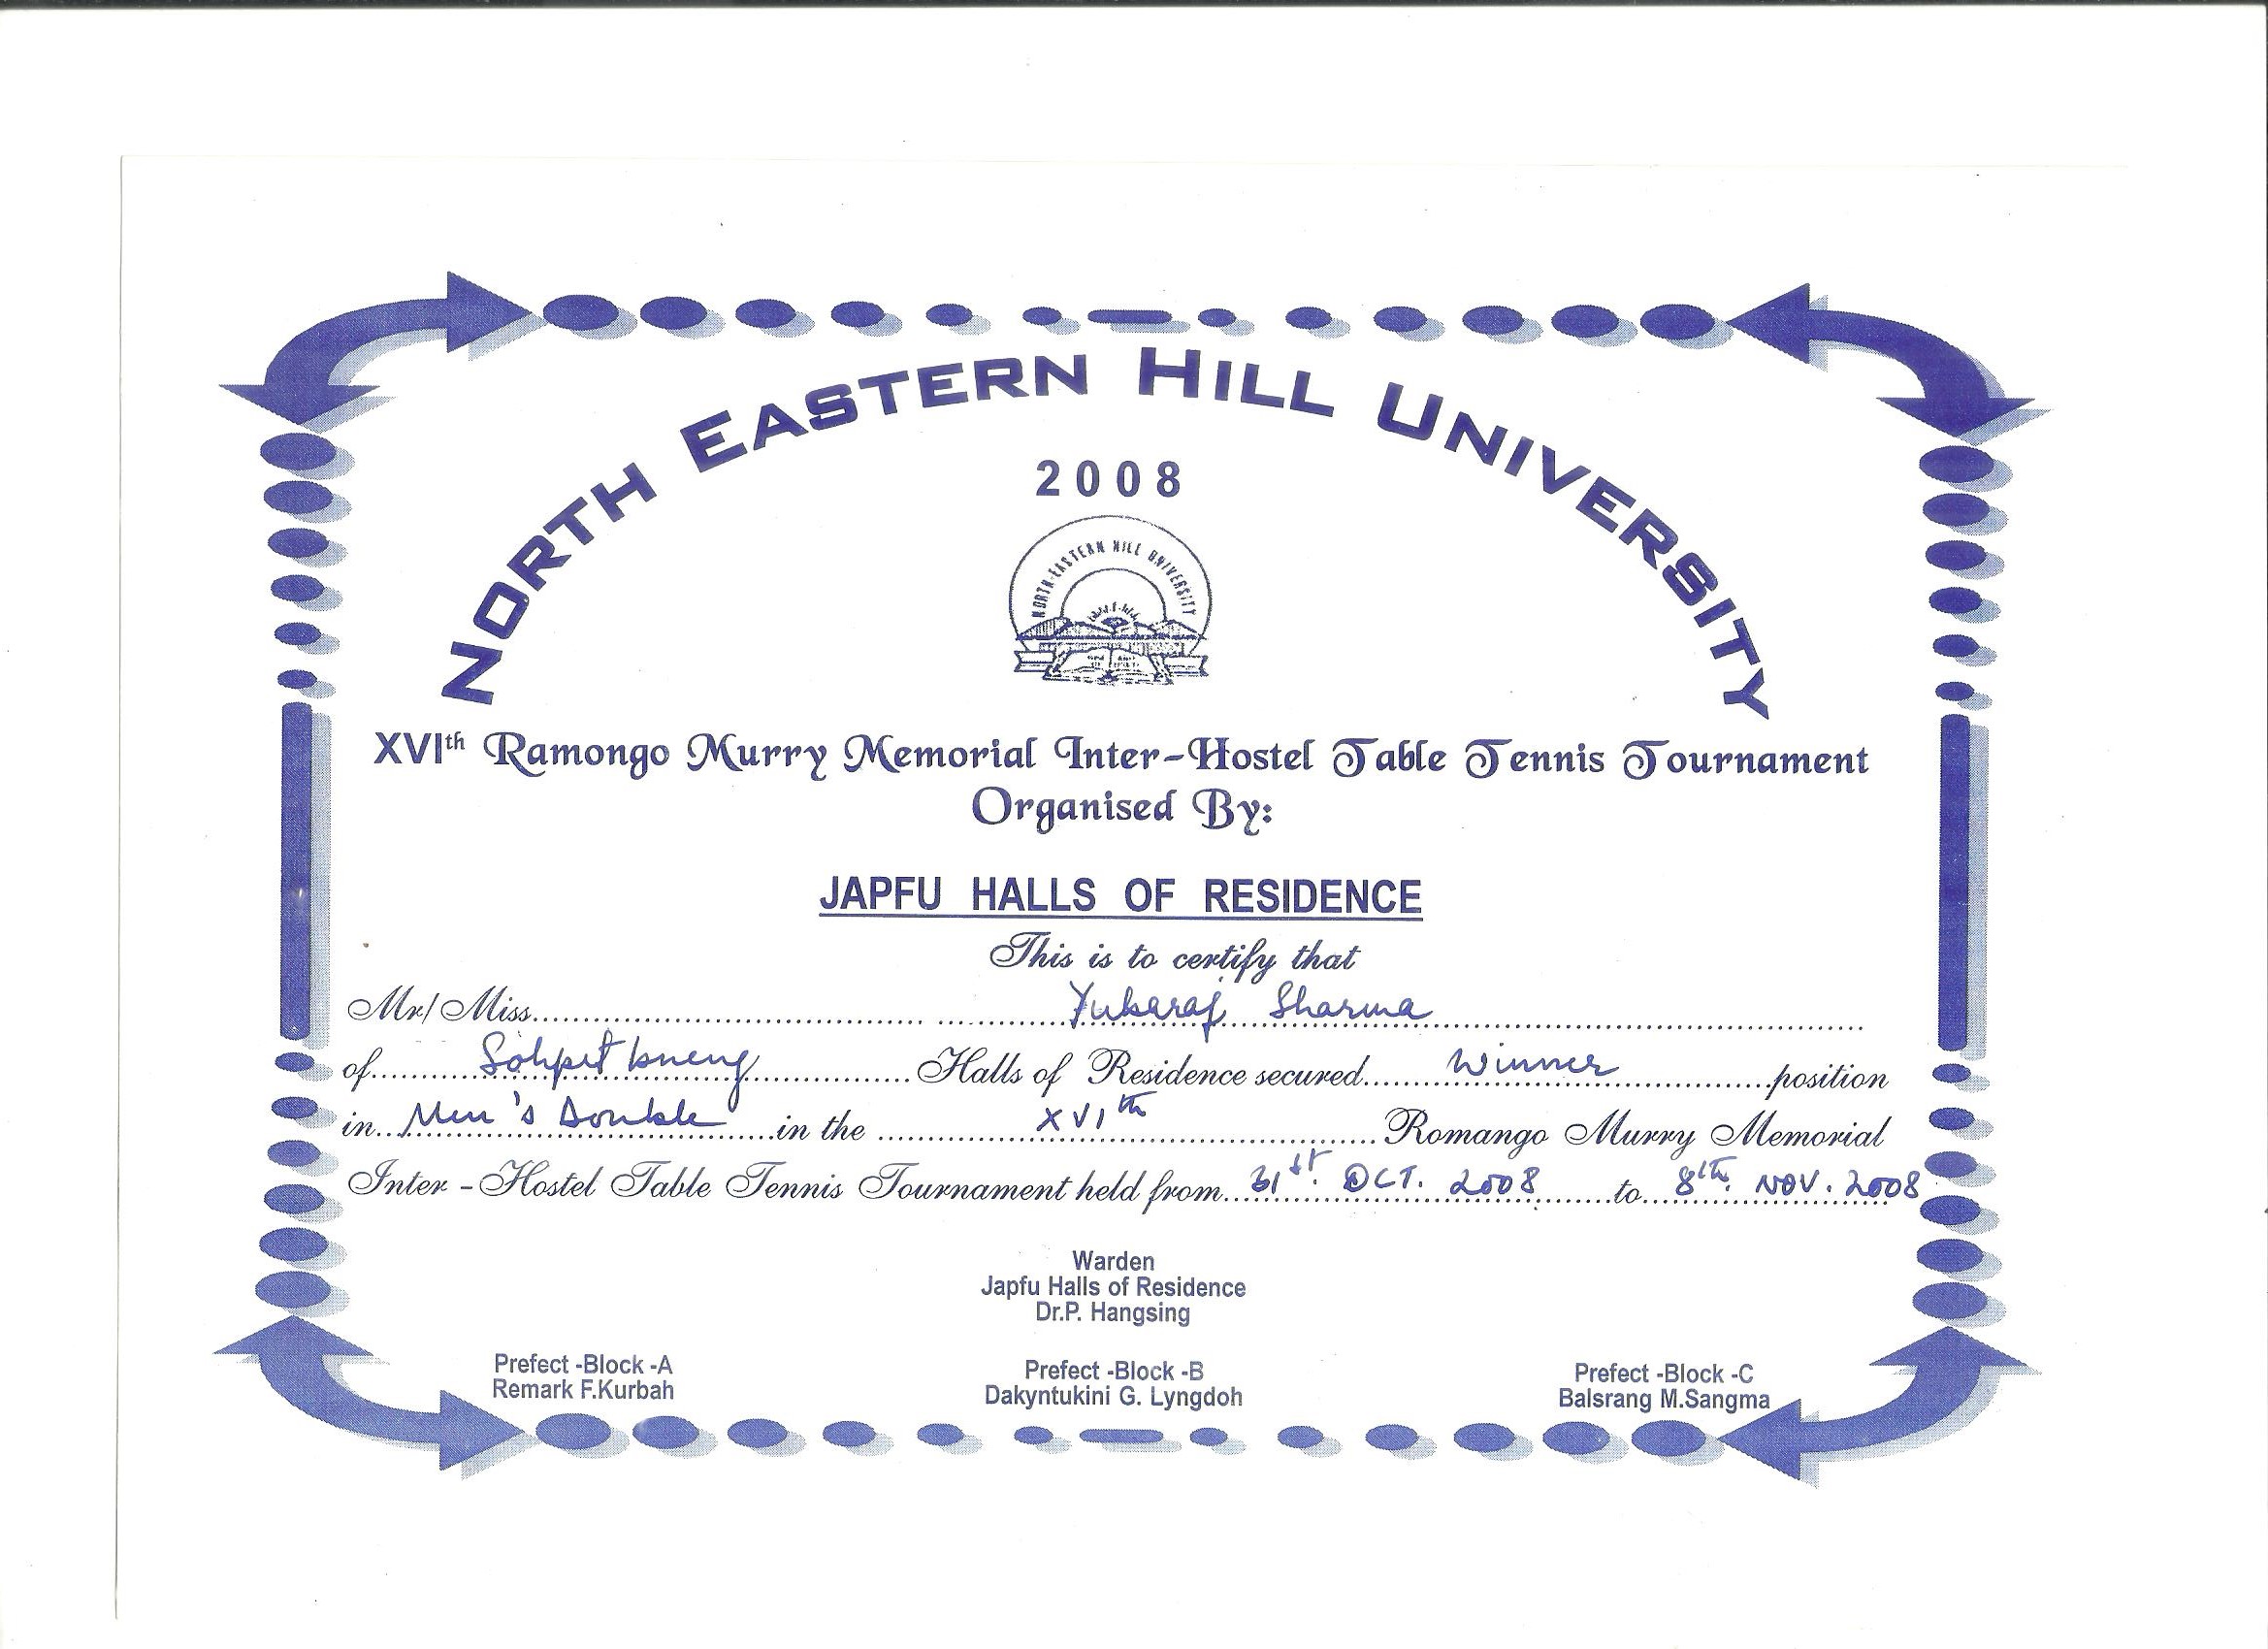 NORTH EASTERN HILL UNIVERSITY
2008
NORTH-EASTERN HILL UNIVERSITY
XVIth Ramongo Murry Memorial Inter-Hostel Table Tennis Tournament
Organised By:
JAPFU HALLS OF RESIDENCE
This is to certify that
Mr/Miss.......... Yubaraj Sharma ..........
of.......... Sohpet bneng .......... Halls of Residence secured.......... Winner ..........position
in.. Men's Double ..........in the .......... XVIth .......... Romango Murry Memorial
Inter - Hostel Table Tennis Tournament held from... 31st. OCT. 2008 .......to... 8th. NOV. 2008
Warden
Japfu Halls of Residence
Dr.P. Hangsing
Prefect -Block -A
Remark F.Kurbah
Prefect -Block -B
Dakyntukini G. Lyngdoh
Prefect -Block -C
Balsrang M.Sangma